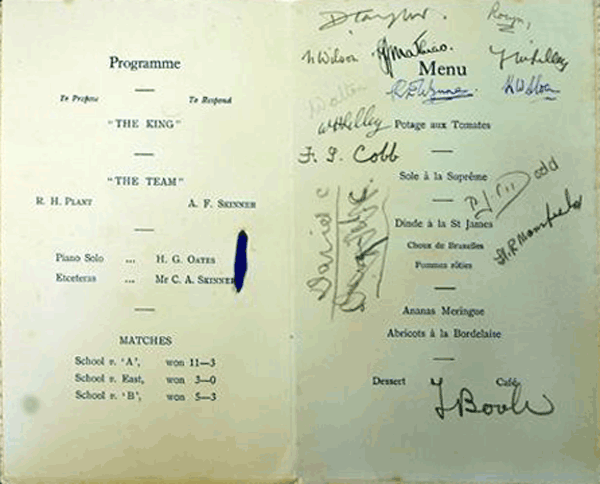 Programme
To Propose To Respond
"THE KING"
"THE TEAM"
R. H. PLANT A. F. SKINNER
Piano Solo ... H. G. OATES
Etceteras ... Mr C. A. SKINNER
MATCHES
School v. 'A', won 11—3
School v. East, won 3—0
School v. 'B', won 5—3
D Taylor.
N Wilson
Menu
Potage aux Tomates
F. G. Cobb
Sole à la Suprême
Dodd
Dinde à la St James
H.R. Mansfield
Choux de Bruxelles
Pommes rôties
David C
Ananas Meringue
Abricots à la Bordelaise
Dessert Café